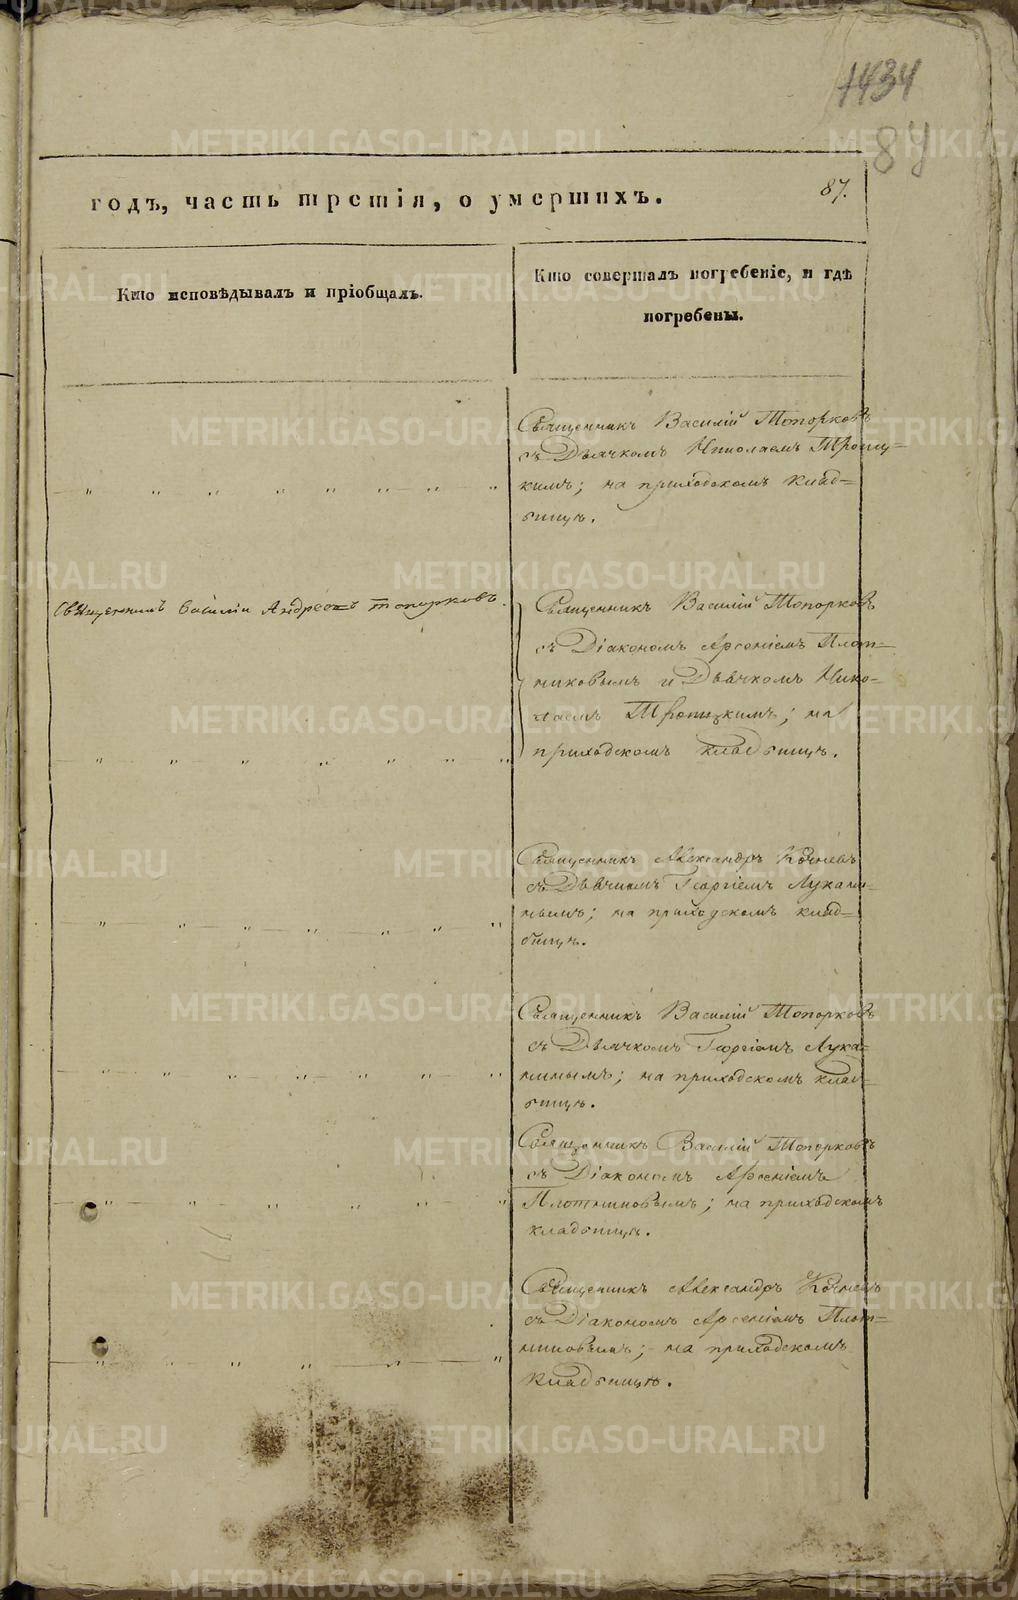 1434
87
87.
годъ, часть третія, о умершихъ.
Кто исповѣдывалъ и пріобщалъ.
Кто совершалъ погребеніе, и гдѣ
погребены.
Священникъ Василій Топорковъ
съ Дьячкомъ Николаемъ Троиц-
кимъ; на приходскомъ клад-
бищѣ.
Священникъ Василій Андреевъ Топорковъ.
Священникъ Василій Топорковъ
съ Діакономъ Арсеніемъ Плот-
никовымъ и Дьячкомъ Нико-
лаемъ Троицкимъ; на
приходскомъ кладбищѣ.
Священникъ Александръ Кочневъ
съ Дьячкомъ Георгіемъ Лукани-
нымъ; на приходскомъ клад-
бищѣ.
Священникъ Василій Топорковъ
съ Дьячкомъ Георгіемъ Лука-
нинымъ; на приходскомъ клад-
бищѣ.
Священникъ Василій Топорковъ
съ Діакономъ Арсеніемъ
Плотниковымъ; на приходскомъ
кладбищѣ.
Священникъ Александръ Кочневъ
съ Діакономъ Арсеніемъ Плот-
никовымъ; на приходскомъ
кладбищѣ.
METRIKI.GASO-URAL.RU